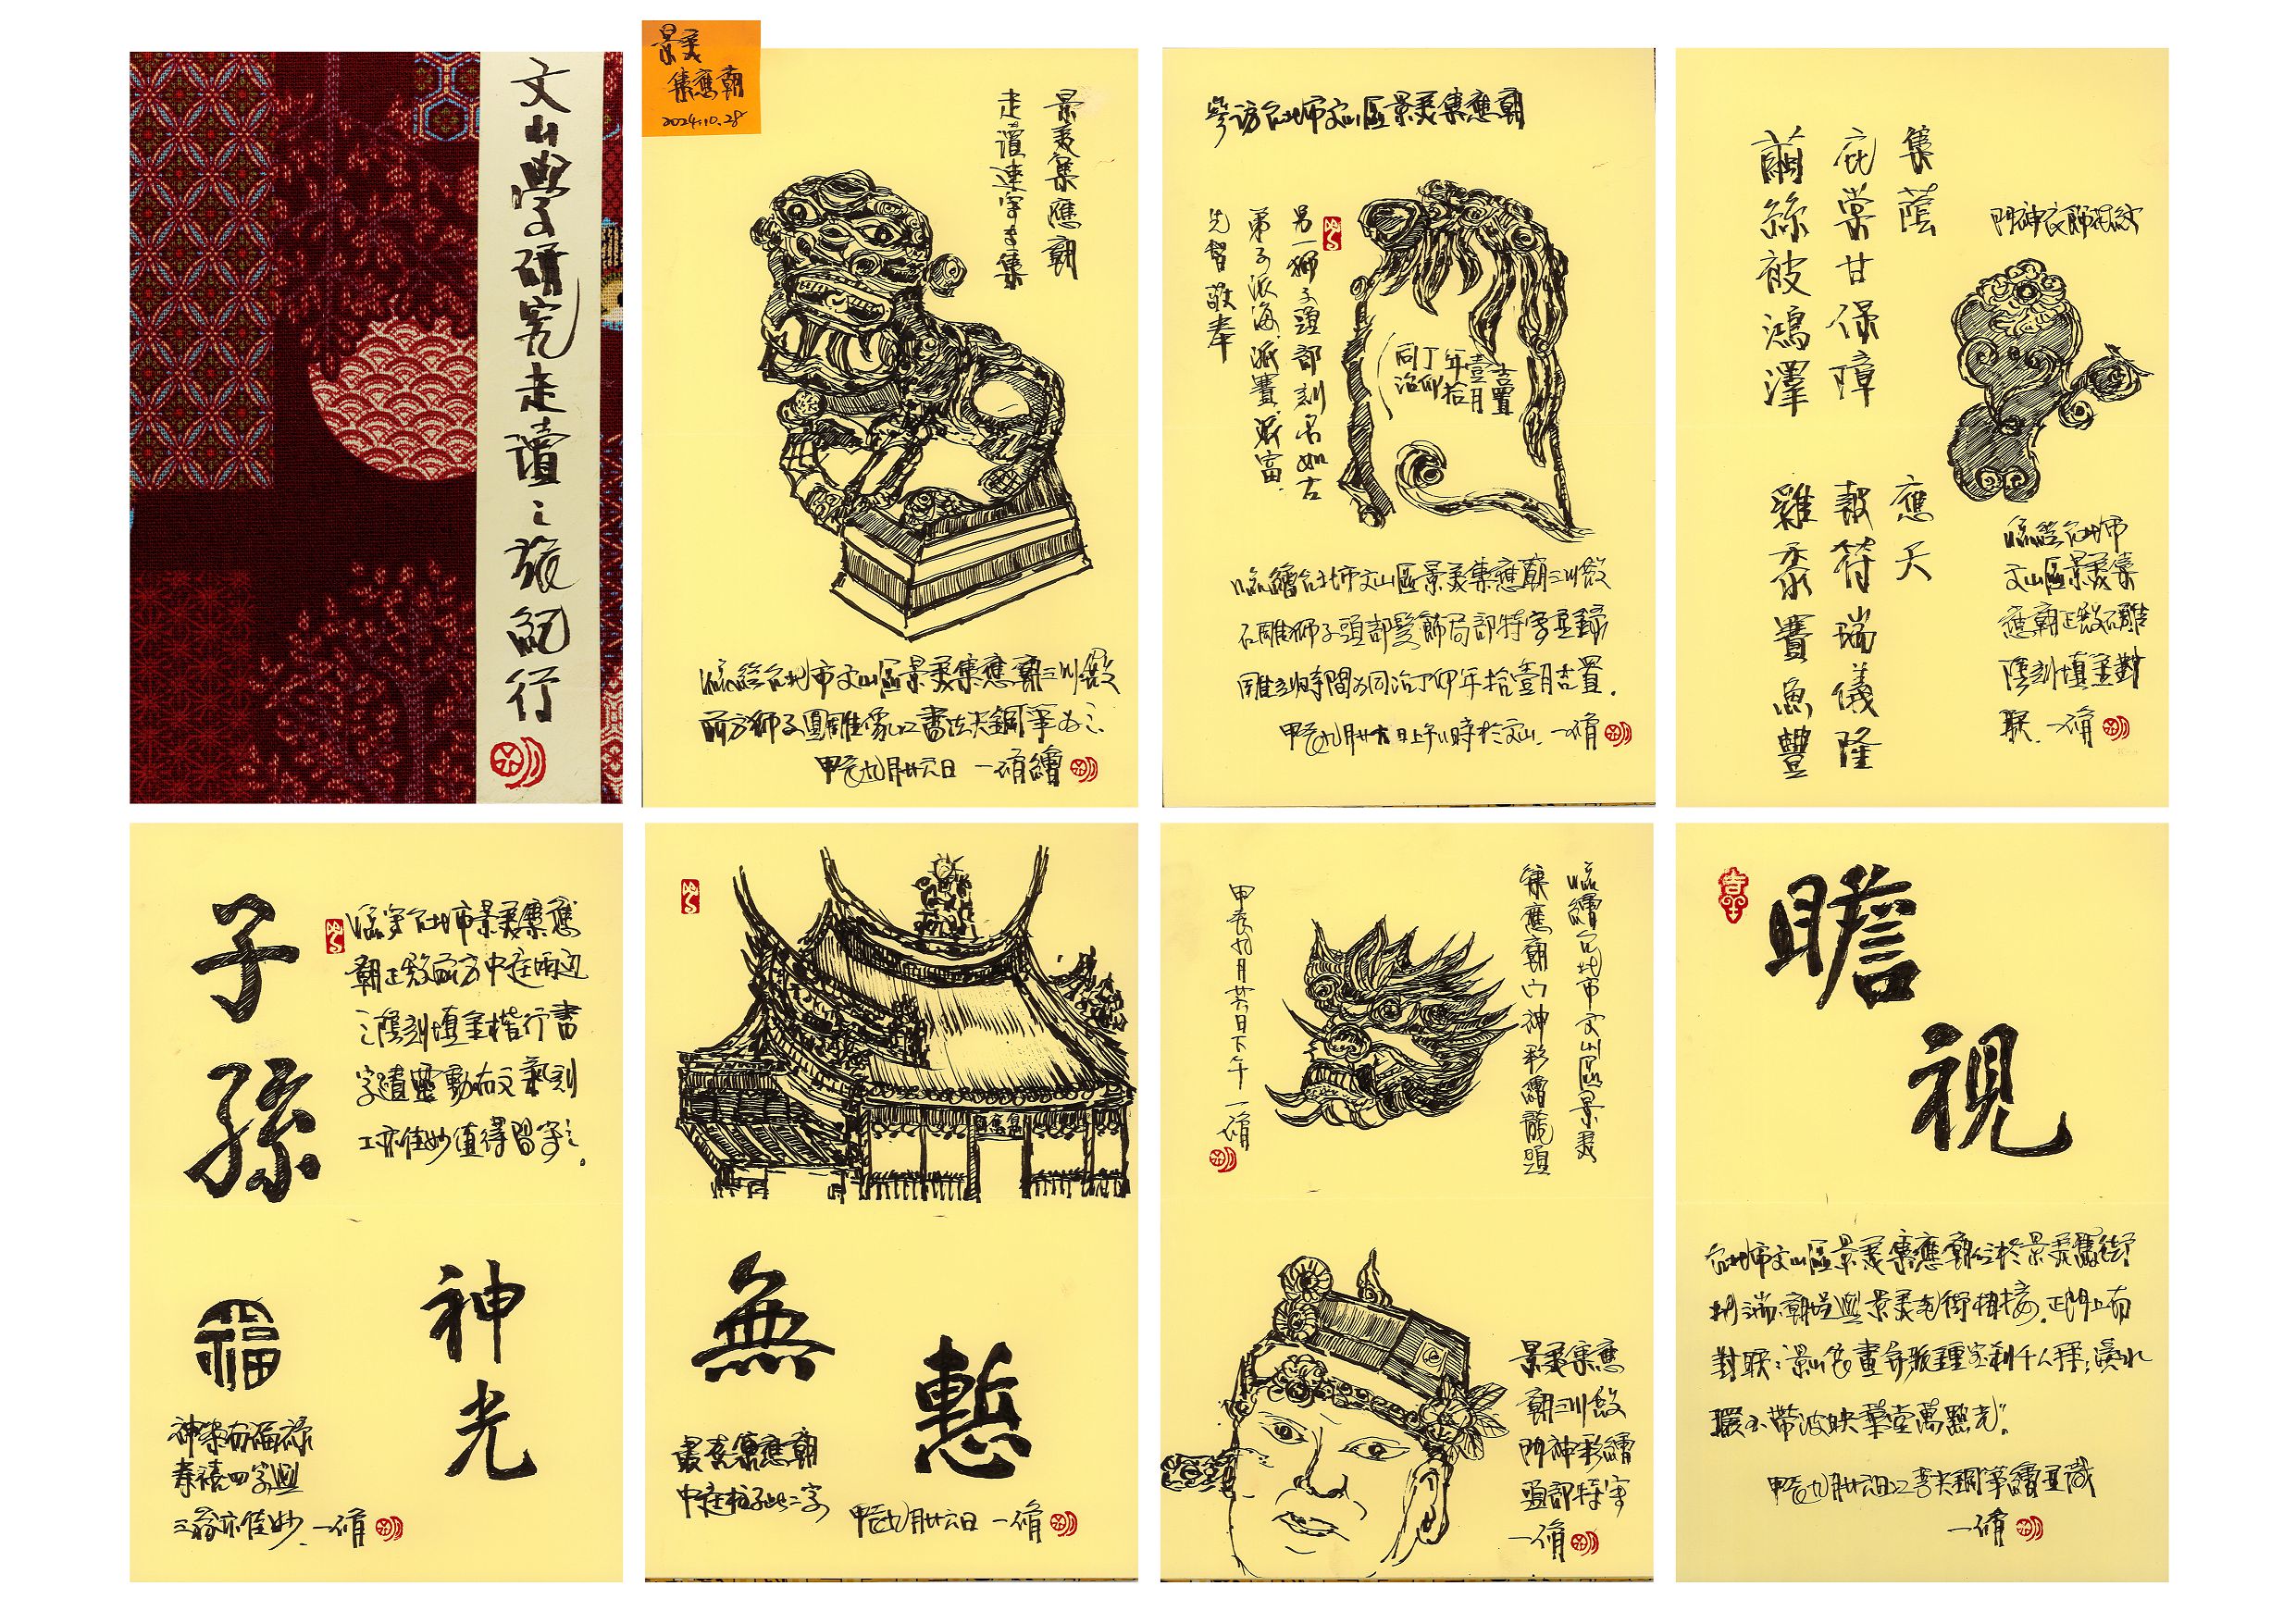 文山學研究走讀之旅紀行
景美
集應廟
2024.10.28
景美集應廟
走讀速寫專集
臨繪台北市文山區景美集應廟三川殿
前方獅子圓雕像以書法尖鋼筆為之
甲辰九月廿六日 一脩繪
參訪台北市文山區景美集應廟
另一獅子頭部刻名如右
弟子派海、派賽、派富、
先智敬奉
吉置
年壹拾月
丁卯
同治
臨繪台北市文山區景美集應廟三川殿
石雕獅子頭部髮飾局部特寫並錄
雕刻時間為同治丁卯年拾壹月吉置.
甲辰九月廿六日上午11時於文山. 一脩
集蔭
庇棠甘保障
繭絲被鴻澤
應天
報符瑞儀隆
雞黍賽魚豐
門神衣飾花紋
臨繪台北市
文山區景美集
應廟正殿石雕
陰刻填金對
聯. 一脩
子孫
臨寫台北市景美集應
廟正殿前方中庭兩邊
之陰刻填金楷行書
字道靈動右文篆刻
工亦佳妙值得習寫之.
神光
福
神桌有福祿
壽禧四字與
亦佳妙. 一脩
無
慙
最喜集應廟
中庭柱子此二字
甲辰九月廿六日 一脩
臨繪台北市文山區景美
集應廟門神彩繪龍頭
甲辰九月廿六日下午 一脩
景美集應
廟三川殿
門神彩繪
頭部特寫
一脩
瞻視
台北市文山區景美集應廟位於景美舊街
北端廟埕與景美老街相接. 正門上有
甲辰九月廿六日以書尖鋼筆繪並識
一脩